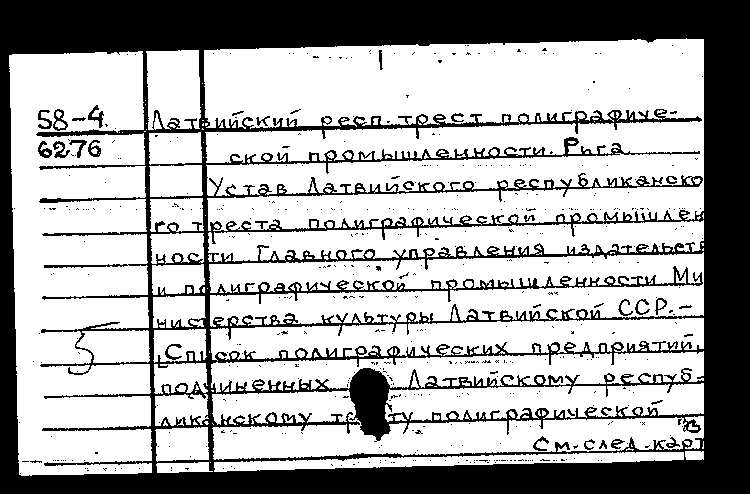 58-4. Латвийский респ. трест полиграфиче-
6276 ской промышленности. Рига
Устав Латвийского республиканско
го треста полиграфической промышлен
ности Главного управления издательств
и полиграфической промышленности Ми
нистерства культуры Латвийской ССР. –
5 [Список полиграфических предприятий,
подчиненных Латвийскому респуб-
ликанскому тресту полиграфической
См. след. карт